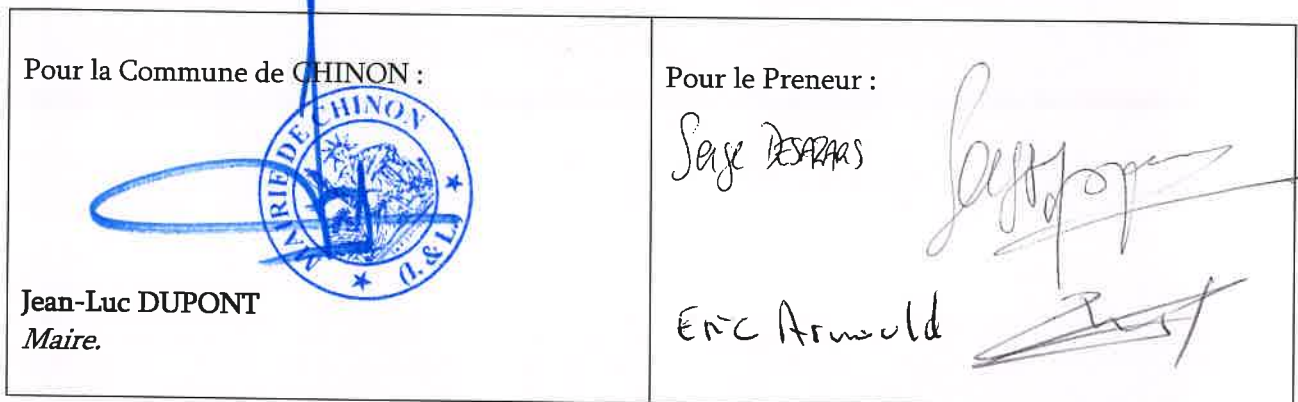 Pour la Commune de CHINON :
MAIRIE DE CHINON
★ (I. & L.) ★
Jean-Luc DUPONT
Maire.
Pour le Preneur :
Serge DESAZARS
Eric Arnould